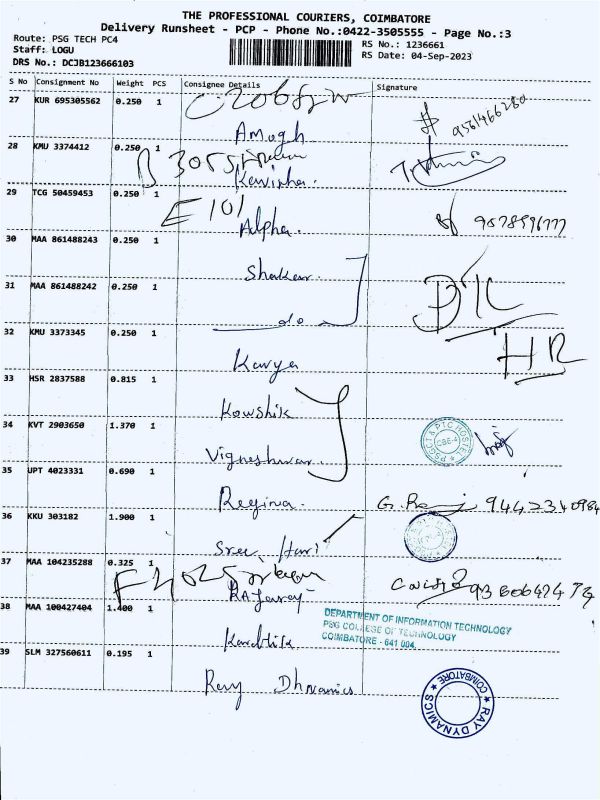 THE PROFESSIONAL COURIERS, COIMBATORE
Delivery Runsheet - PCP - Phone No.:0422-3505555 - Page No.:3
Route: PSG TECH PC4
RS No.: 1236661
Staff: LOGU
RS Date: 04-Sep-2023
DRS No.: DCJB123666103
S No Consignment No Weight PCS Consignee Details Signature
27 KUR 695305562 0.250 1
Amogh 9561466280
28 KMU 3374412 0.250 1
B 305
Kavisha.
29 TCG 50459453 0.250 1
E 101
Alpha.
30 MAA 861488243 0.250 1
Shakar.
31 MAA 861488242 0.250 1
do
32 KMU 3373345 0.250 1
HR
Kavya
33 HSR 2837588 0.815 1
Kowshik
34 KVT 2903650 1.370 1
PSGCT & PTC HOSTEL
CBE-4
Vigneshwar.
35 UPT 4023331 0.690 1
Regina. G. 9442340984
36 KKU 303182 1.900 1
Sree Hari
37 MAA 104235288 0.325 1
F 402
38 MAA 100427404 1.400 1
DEPARTMENT OF INFORMATION TECHNOLOGY
PSG COLLEGE OF TECHNOLOGY
COIMBATORE - 641 004.
Karthik
39 SLM 327560611 0.195 1
Ray Dhnamics
RAY DYNAMICS
COIMBATORE